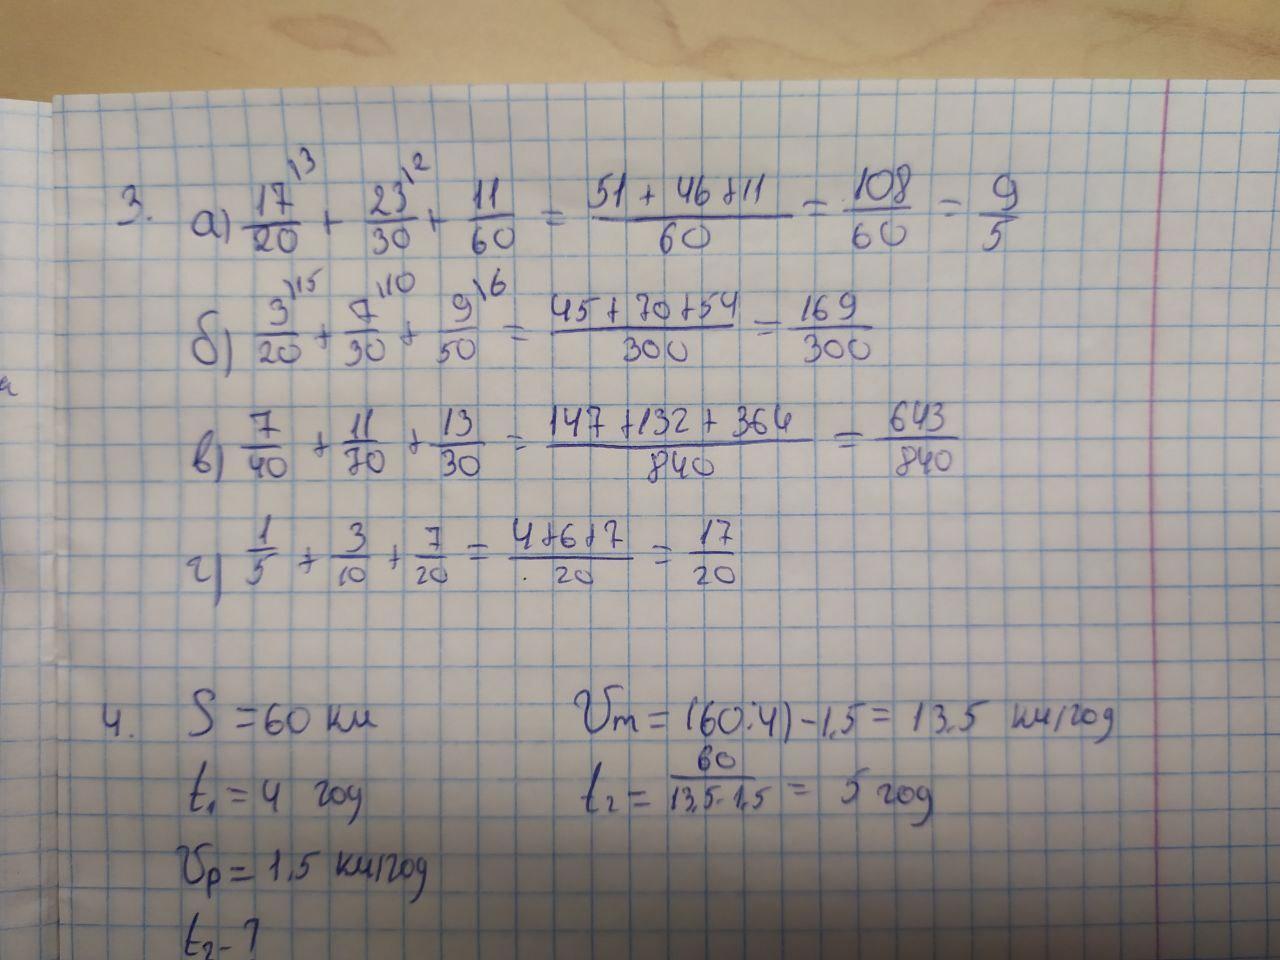 3. а) 17/20 \3 + 23/30 \2 + 11/60 = (51 + 46 + 11)/60 = 108/60 = 9/5
б) 3/20 \15 + 7/30 \10 + 9/50 \6 = (45 + 70 + 54)/300 = 169/300
в) 7/40 + 11/70 + 13/30 = (147 + 132 + 364)/840 = 643/840
г) 1/5 + 3/10 + 7/20 = (4 + 6 + 7)/20 = 17/20
4. S = 60 км
t₁ = 4 год
Vp = 1,5 км/год
t₂ - ?
Vm = (60:4) - 1,5 = 13,5 км/год
t₂ = 60/(13,5 - 1,5) = 5 год